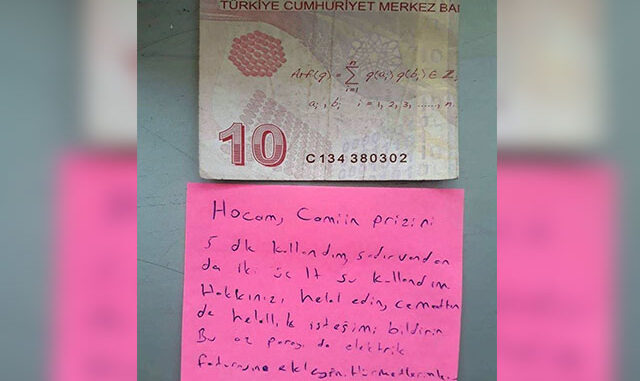 TÜRKİYE CUMHURİYET MERKEZ BA
Arf(q) = Σ q(aᵢ) q(bᵢ) ∈ Z
n
i=1
aᵢ, bᵢ i = 1, 2, 3, ......, n
10
C134 380302
Hocam, Camiin prizini
5 dk kullandım, şadırvandan
da iki üç lt su kullandım
Hakkınızı helal edin, cemaatten
de helallik isteğimi bildirin
Bu az parayı da elektrik
faturasına ekleyin. Hürmetlerimle